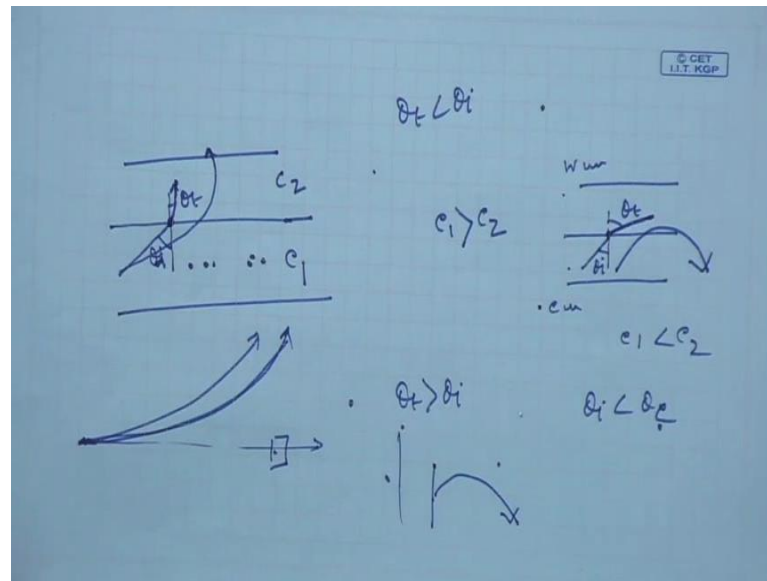 © CET
I.I.T. KGP
θt < θi
C2
θt
C1 > C2
θi
C1
θt
θi
C1 < C2
θt > θi
θi < θc